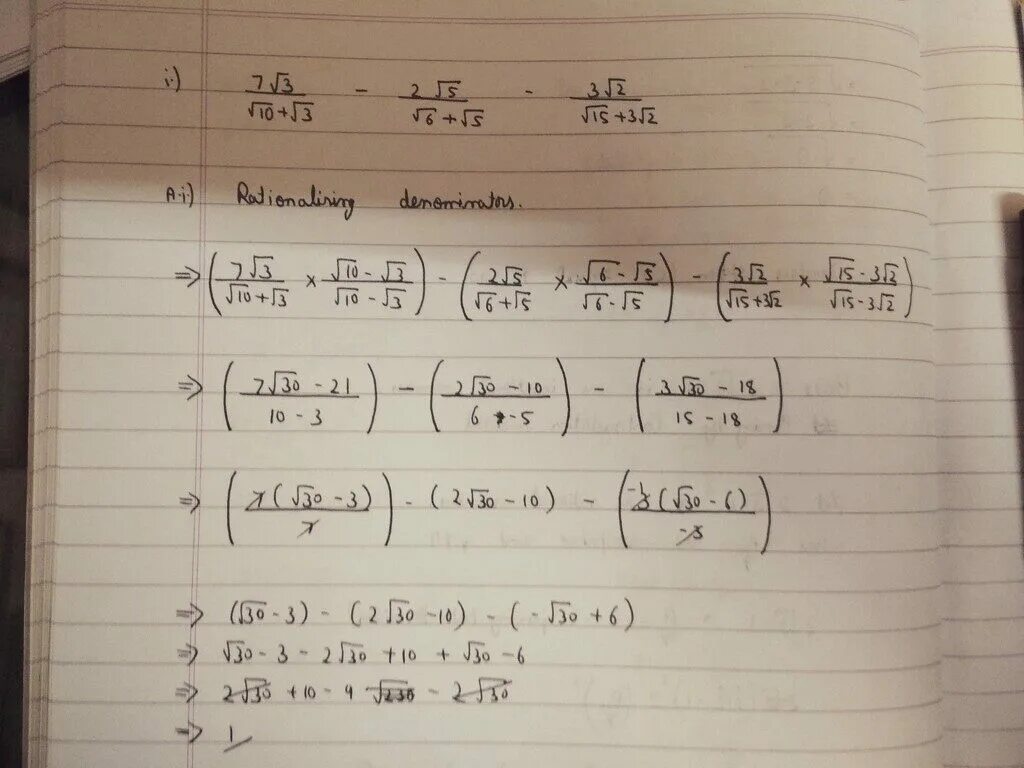 i.) 7√3/(√10+√3) - 2√5/(√6+√5) - 3√2/(√15+3√2)
A.i) Rationalising denominators.
⇒ (7√3/(√10+√3) × (√10-√3)/(√10-√3)) - (2√5/(√6+√5) × (√6-√5)/(√6-√5)) - (3√2/(√15+3√2) × (√15-3√2)/(√15-3√2))
⇒ ((7√30-21)/(10-3)) - ((2√30-10)/(6-5)) - ((3√30-18)/(15-18))
⇒ (7(√30-3)/7) - (2√30-10) - (-1 3(√30-6)/-3)
⇒ (√30-3) - (2√30-10) - (-√30+6)
⇒ √30-3-2√30+10+√30-6
⇒ 2√30+10-9 √230 - 2√30
⇒ 1